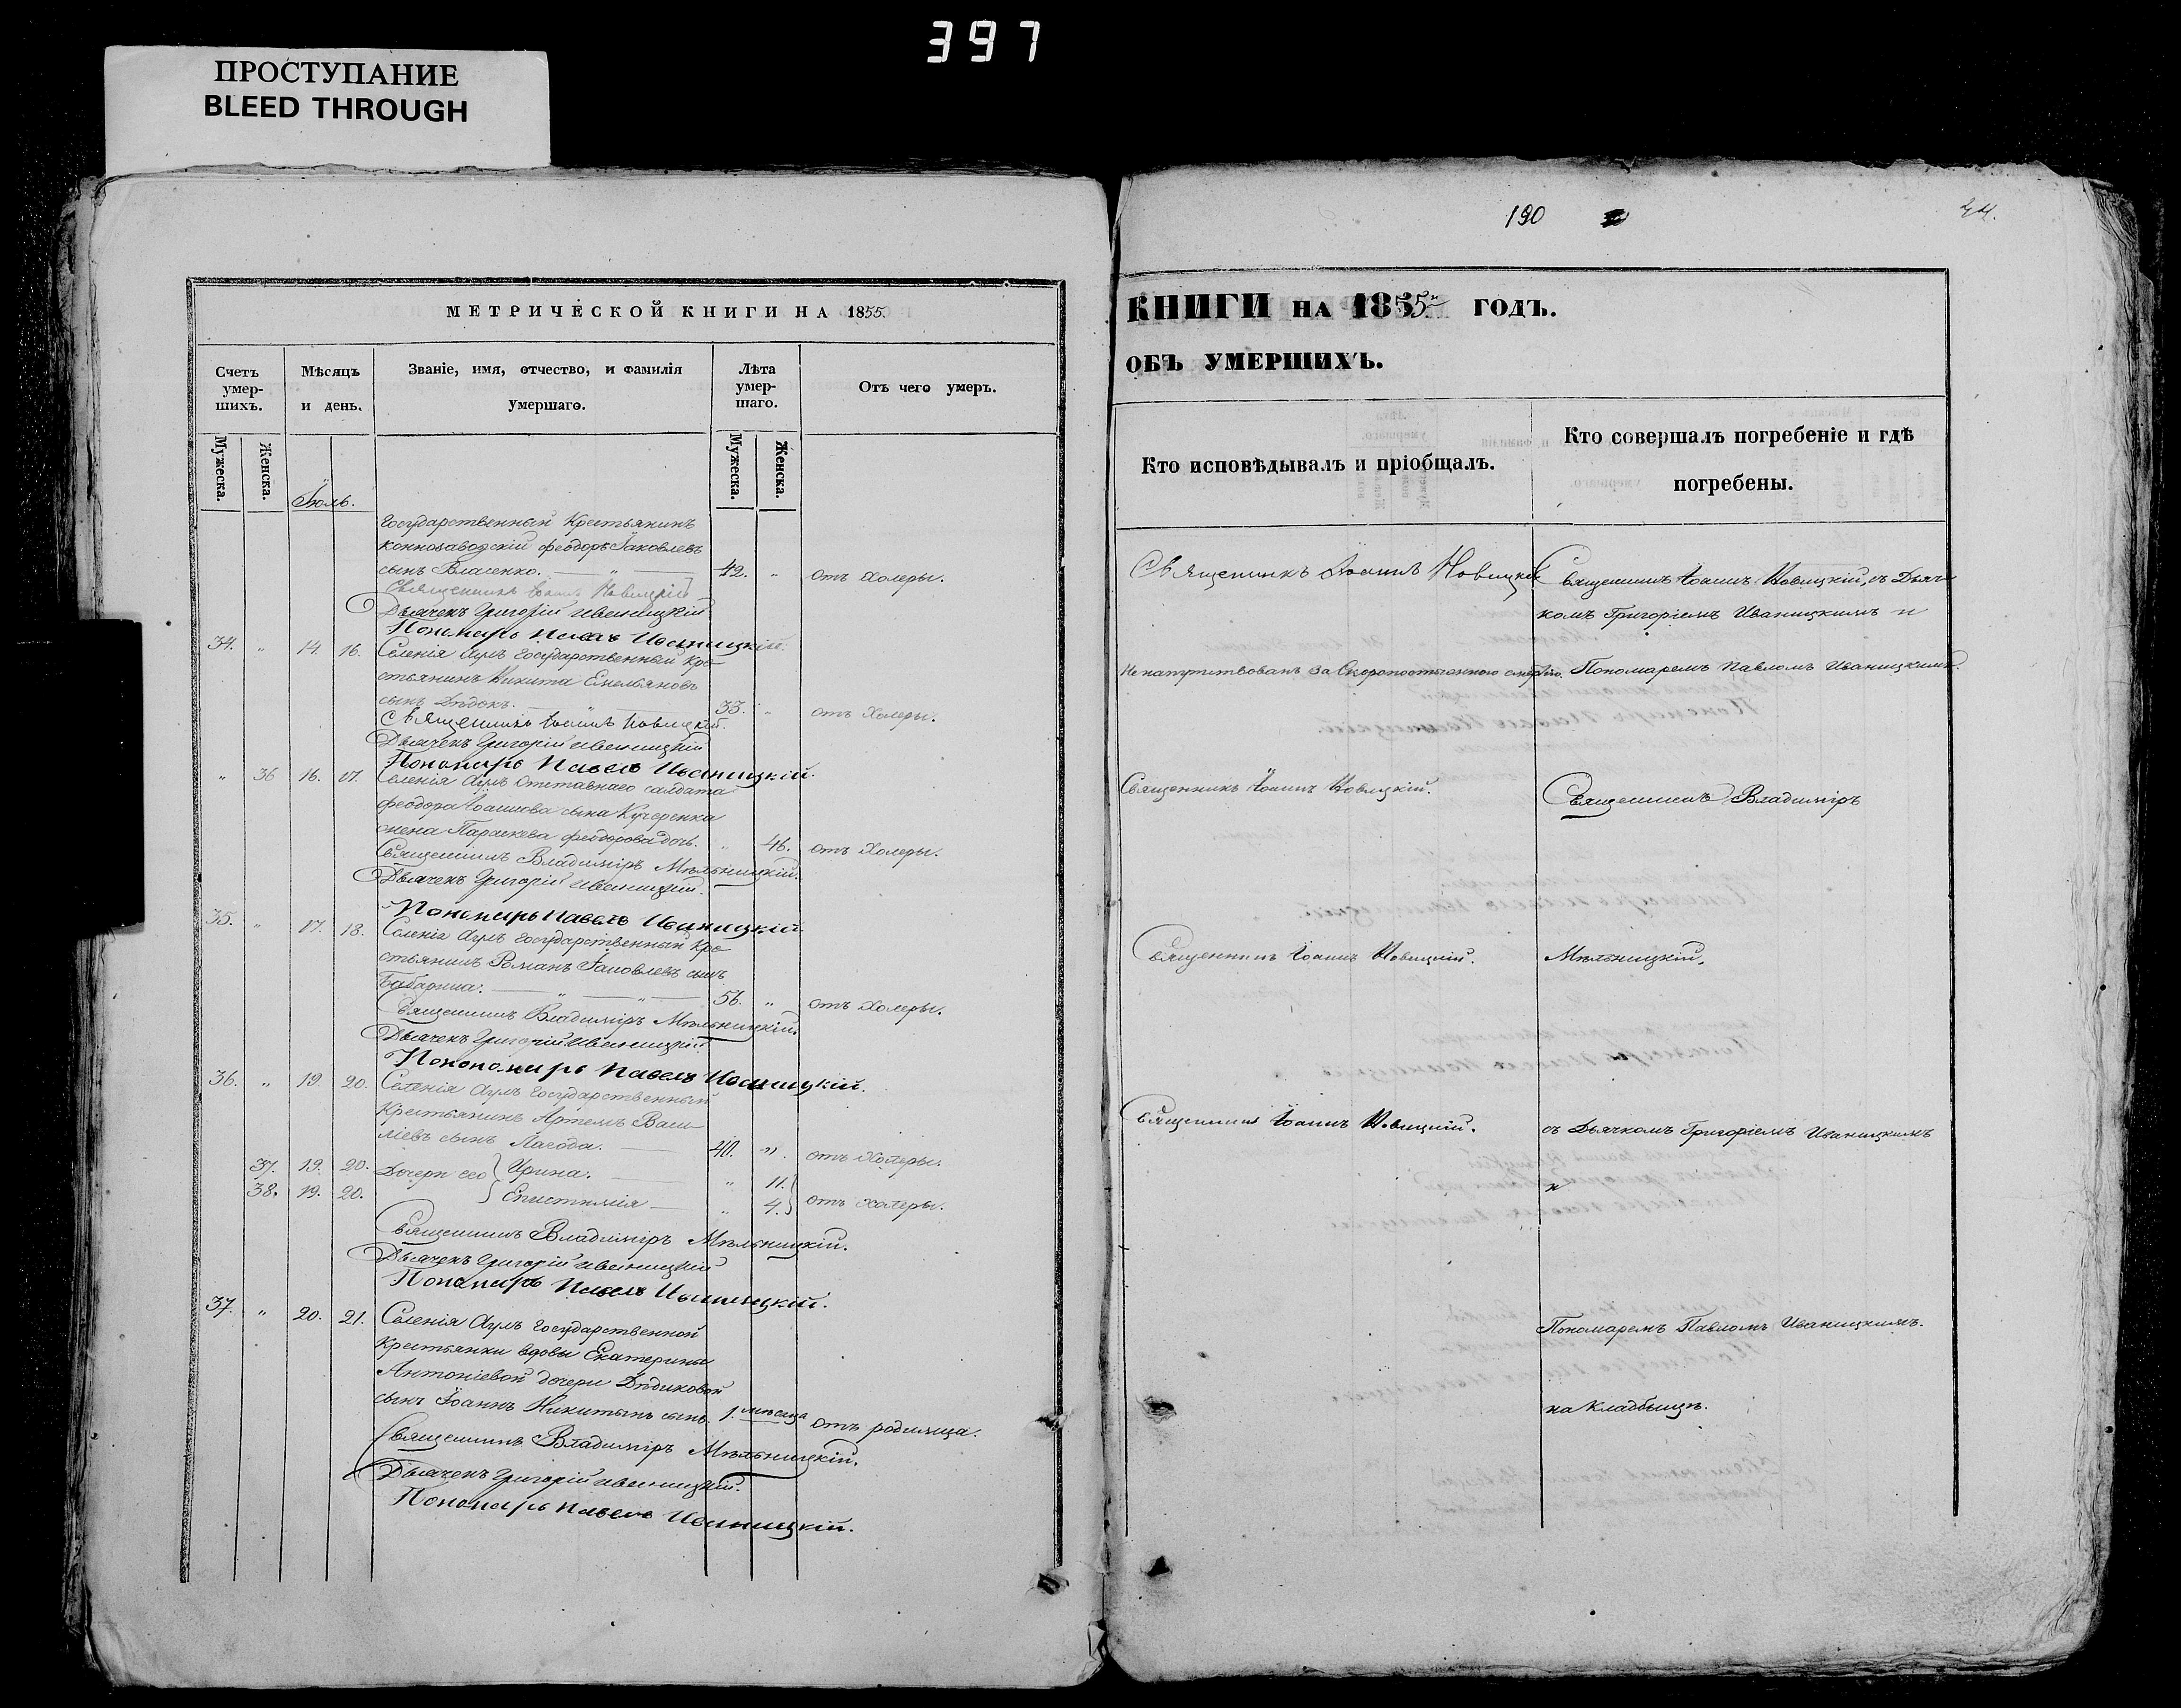 397
ПРОСТУПАНИЕ
BLEED THROUGH
МЕТРИЧЕСКОЙ КНИГИ НА 1855.
Счетъ умер-шихъ.
Мѣсяцъ и день.
Званіе, имя, отчество, и фамилія умершаго.
Лѣта умер-шаго.
Отъ чего умеръ.
Мужеска. Женска. Мужеска. Женска.
Іюль.
Государственный Крестьянинъ
коннозаводскій Феодоръ Іаковлевъ
сынъ Власенко. — " — 42. " отъ Холеры.
Священникъ Іоаннъ Новицкій
Дьячекъ Григорій Иваницкій
Пономарь Павелъ Иваницкій.
34. " 14. 16. Селенія Аулъ Государственный Кре-
стьянинъ Никита Емельяновъ
сынъ Дѣдокъ. 33. " отъ Холеры.
Священникъ Іоаннъ Новицкій.
Дьячекъ Григорій Иваницкій
Пономарь Павелъ Иваницкій.
" 36 16. 17. Селенія Аулъ Отставнаго салдата
Феодора Іоаннова сына Кучеренка
жена Параскева Феодорова дочь. " 46. отъ Холеры.
Священникъ Владиміръ Мѣльницкій.
Дьячекъ Григорій Иваницкій.
Пономарь Павелъ Иваницкій.
35. " 17. 18. Селенія Аулъ Государственный Кре-
стьянинъ Романъ Іаковлевъ сынъ
— " — " — 56. " отъ Холеры.
Священникъ Владиміръ Мѣльницкій.
Дьячекъ Григорій Иваницкій
Пономарь Павелъ Иваницкій.
36. " 19. 20. Селенія Аулъ Государственный
Крестьянинъ Артемъ Васи-
ліевъ сынъ Лагода. — 40. " . отъ Холеры.
37. 19. 20. Дочери его Ирина. — " 11.
38. 19. 20. Епистимія — " 4. отъ Холеры.
Священникъ Владиміръ Мѣльницкій.
Дьячекъ Григорій Иваницкій
Пономарь Павелъ Иваницкій.
37. " 20. 21. Селенія Аулъ Государственной
Крестьянки вдовы Екатерины
Антоніевой дочери Дѣдиковой
сынъ Іоаннъ Никитинъ сынъ. 1. мѣсяца отъ родимца.
Священникъ Владиміръ Мѣльницкій.
Дьячекъ Григорій Иваницкій.
Пономарь Павелъ Иваницкій.
190
КНИГИ НА 1855й ГОДЪ.
ОБЪ УМЕРШИХЪ.
Кто исповѣдывалъ и пріобщалъ.
Кто совершалъ погребеніе и гдѣ
погребены.
Священникъ Іоаннъ Новицкій
Священникъ Іоаннъ Новицкій, съ Дьяч-
комъ Григоріемъ Иваницкимъ и
Не напутствованъ за Скоропостижною смертію.
Пономаремъ Павломъ Иваницкимъ.
Священникъ Іоаннъ Новицкій.
Священникъ Владиміръ
Священникъ Іоаннъ Новицкій.
Мѣльницкій,
Священникъ Іоаннъ Новицкій.
съ Дьячкомъ Григоріемъ Иваницкимъ
и
Пономаремъ Павломъ Иваницкимъ.
на Кладбищѣ.